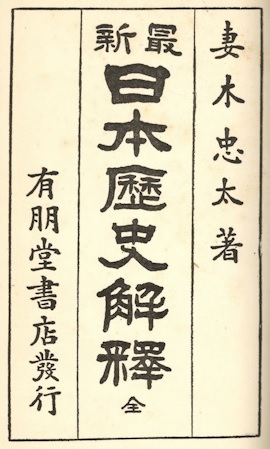 妻木忠太著
最新
日本歷史解釋
全
有朋堂書店發行